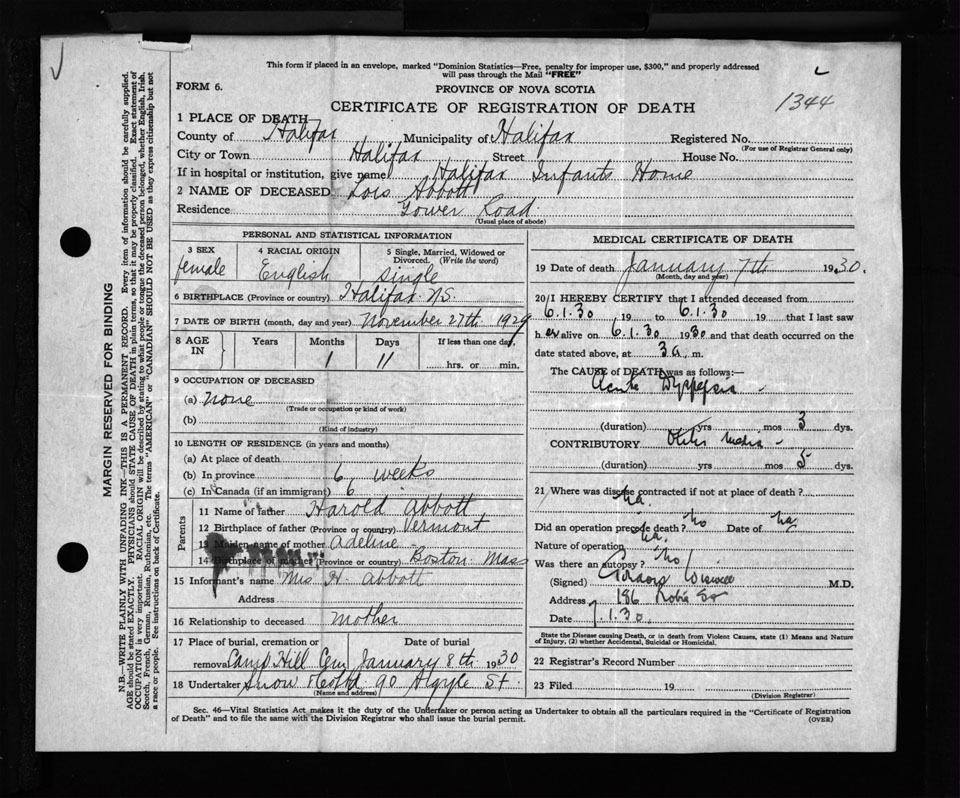 This form if placed in an envelope, marked "Dominion Statistics—Free, penalty for improper use, $300," and properly addressed
will pass through the Mail "FREE"
FORM 6.
PROVINCE OF NOVA SCOTIA
1344
CERTIFICATE OF REGISTRATION OF DEATH
1 PLACE OF DEATH
County of Halifax Municipality of Halifax Registered No.
(For use of Registrar General only)
City or Town Halifax Street House No.
If in hospital or institution, give name Halifax Infants Home
2 NAME OF DECEASED Lois Abbott
Residence Tower Road
(Usual place of abode)
PERSONAL AND STATISTICAL INFORMATION
3 SEX 4 RACIAL ORIGIN 5 Single, Married, Widowed or
Divorced. (Write the word)
female English single
6 BIRTHPLACE (Province or country) Halifax N.S.
7 DATE OF BIRTH (month, day and year) November 27th 1929
8 AGE IN Years Months Days If less than one day,
1 11 hrs. or min.
9 OCCUPATION OF DECEASED
(a) none
(Trade or occupation or kind of work)
(b)
(Kind of industry)
10 LENGTH OF RESIDENCE (in years and months)
(a) At place of death
(b) In province 6 weeks
(c) In Canada (if an immigrant) 6
Parents
11 Name of father Harold Abbott
12 Birthplace of father (Province or country) Vermont
13 Maiden name of mother Adeline
14 Birthplace of mother (Province or country) Boston Mass
15 Informant's name Mrs H. Abbott
Address
16 Relationship to deceased mother
17 Place of burial, cremation or Date of burial
removal Camp Hill Cem January 8th 1930
18 Undertaker Snow & Co Ltd 90 Argyle St.
(Name and address)
MEDICAL CERTIFICATE OF DEATH
19 Date of death January 7th 1930.
(Month, day and year)
20 I HEREBY CERTIFY that I attended deceased from
6.1.30, 19 to 6.1.30 19 that I last saw
her alive on 6.1.30 1930 and that death occurred on the
date stated above, at 3 a. m.
The CAUSE of DEATH was as follows:
Acute Dyspepsia
(duration) yrs mos 3 dys.
CONTRIBUTORY Otitis Media
(duration) yrs mos 5 dys.
21 Where was disease contracted if not at place of death?
na.
Did an operation precede death? no Date of na
Nature of operation na.
Was there an autopsy? no
(Signed) M.D.
Address 186 Robie St
Date 7.1.30.
State the Disease causing Death, or in death from Violent Causes, state (1) Means and Nature
of Injury, (2) whether Accidental, Suicidal or Homicidal.
22 Registrar's Record Number
23 Filed 19
(Division Registrar)
Sec. 46—Vital Statistics Act makes it the duty of the Undertaker or person acting as Undertaker to obtain all the particulars required in the "Certificate of Registration
of Death" and to file the same with the Division Registrar who shall issue the burial permit.
(OVER)
MARGIN RESERVED FOR BINDING
N.B.—WRITE PLAINLY WITH UNFADING INK—THIS IS A PERMANENT RECORD. Every item of information should be carefully supplied.
AGE should be stated EXACTLY. PHYSICIANS should STATE CAUSE OF DEATH in plain terms, so that it may be properly classified. Exact statement of
OCCUPATION is very important. RACIAL ORIGIN will be described by stating to what people or tongue the deceased person belonged, whether English, Irish,
Scotch, French, German, Russian, Ruthenian, etc. The terms "AMERICAN" or "CANADIAN" SHOULD NOT BE USED as they express citizenship but not
a race or people. See instructions on back of Certificate.